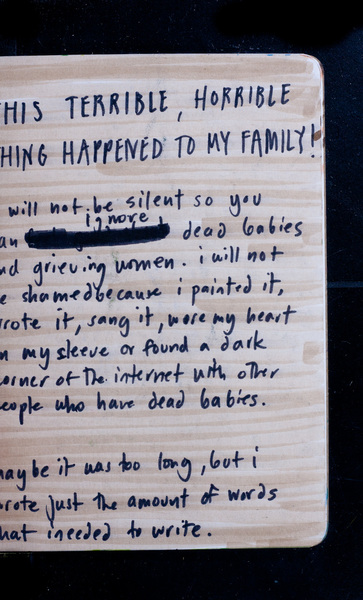 HIS TERRIBLE, HORRIBLE
HING HAPPENED TO MY FAMILY!
will not be silent so you
an ignore dead babies
nd grieving women. i will not
e shamed because i painted it,
rote it, sang it, wore my heart
n my sleeve or found a dark
orner of the internet with other
eople who have dead babies.
maybe it was too long, but i
rote just the amount of words
hat i needed to write.